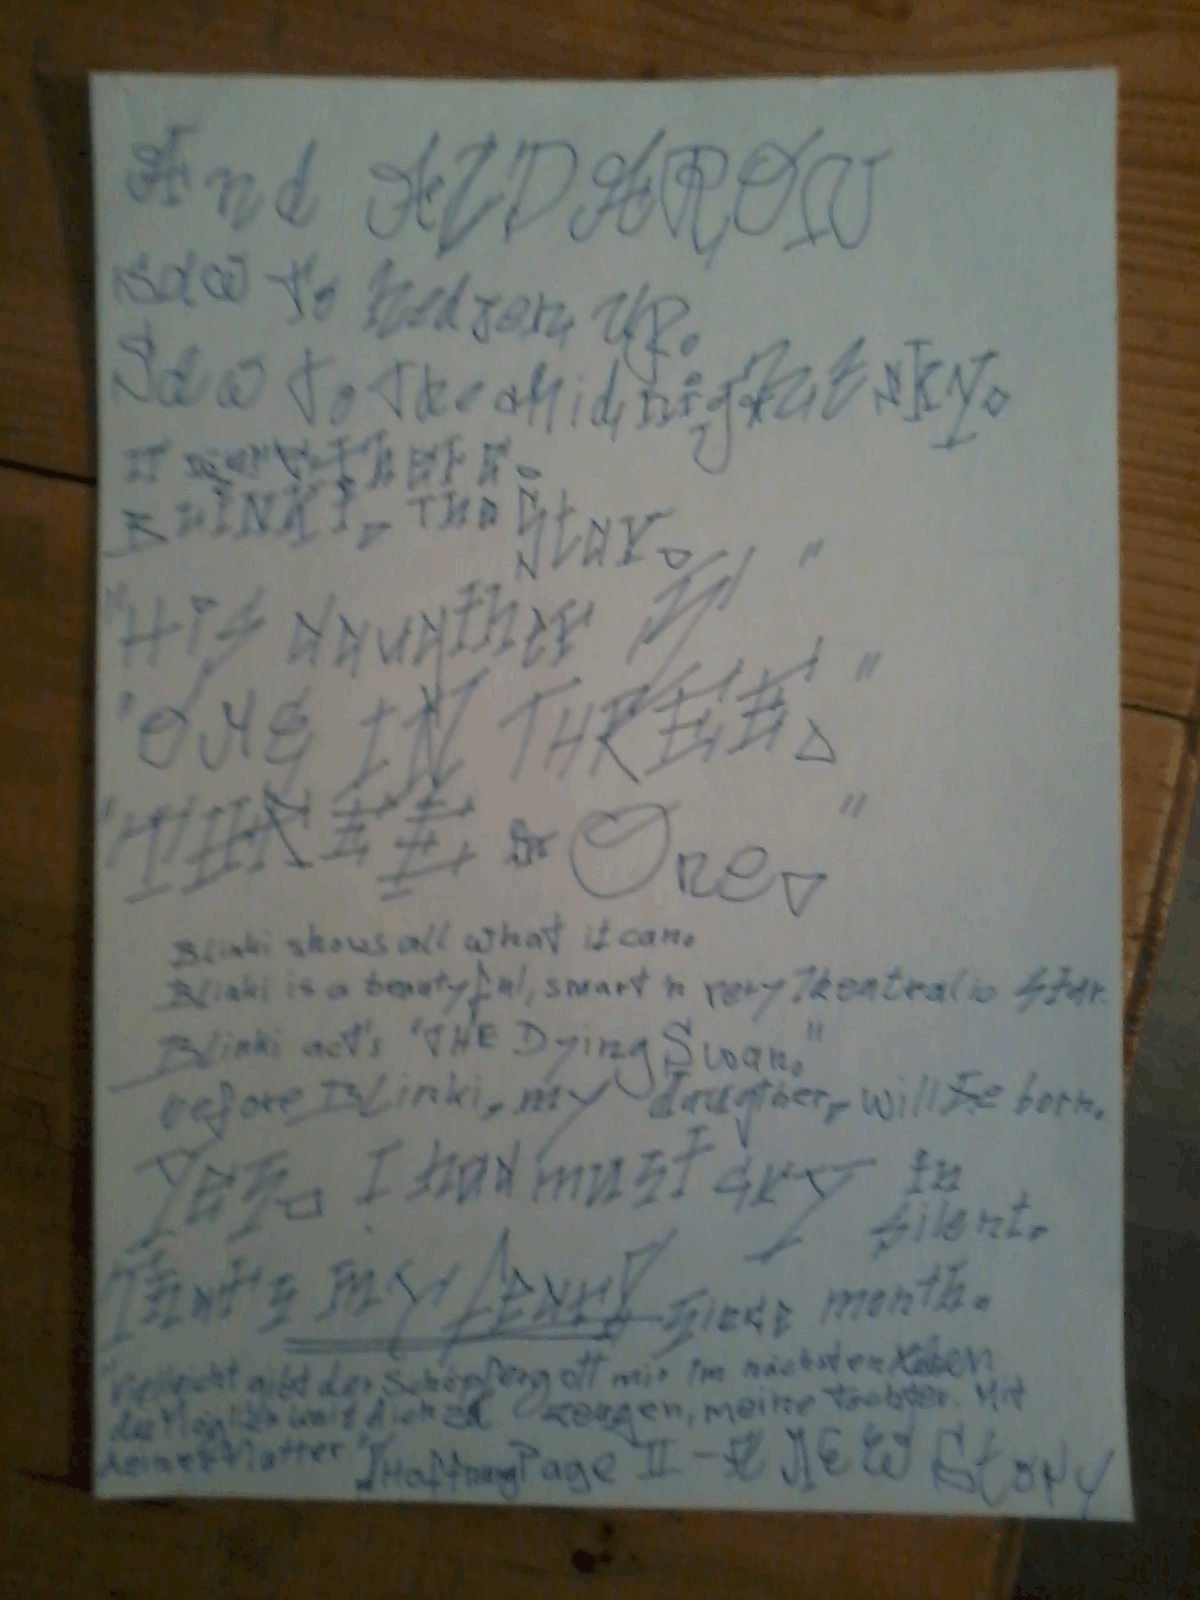 And AZDAROW
Saw To heaven UP.
Saw To The MidnightSky.
IT were There.
BLINKI, The Star.
"His daugther IS"
"ONE IN THREE."
"THREE in One."
Blinki shows all what it can.
Blinki is a beautyful, smart n very Theatralic Star.
Blinki act's "THE Dying Swan."
before Blinki, my daugther, will be born.
Yes. I had must cry in
silent.
That's my fault since month.
"Vielleicht gibt der Schöpfergott mir im nächsten Leben
die Möglichkeit dich zu zeugen, meine Tochter. Mit
deiner Mutter." Hoffnung Page II - A NEW Story